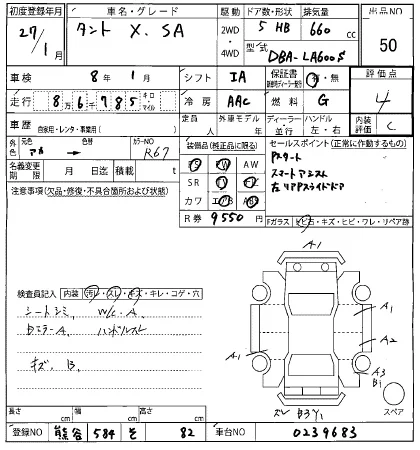 初度登録年月 車名・グレード 駆動 ドア数・形状 排気量 出品NO
27/1月 タント X. SA 2WD・4WD 5 HB 660 cc 50
型式 DBA-LA600S
車検 8年 1月 シフト IA 保証書 有・無 評価点
走行 8万6千785 キロ・マイル 冷房 AAC 燃料 G 4
車歴 自家用・レンタ・事業用( ) 定員 人 外車モデル 年 ディーラー・並行 ハンドル 左・右 内装評価 C
外色 元色 アカ → 色替 カラーNO R67
装備品(純正品に限る) セールスポイント(正常に作動するもの)
PS PW AW Pスタート
名義変更期限 月 日迄 積載 t
SR ナビ TV スマートアシスト
注意事項(欠品・修復・不具合箇所および状態)
カワ エアB ABS 左リアPスライドドア
R券 9550 円
Fガラス ヒビ石・キズ・ヒビ・ワレ・リペア跡
A1
検査員記入 内装 汚レ・スレ・キズ・キレ・コゲ・穴
シートシミ、 W/C. A
Dミラー A、 ハンドルスレ
キズ、B、
A1
A2
A1
A3
B1
スレ B3Y1
スペア
長さ cm 幅 cm 高さ cm
登録NO 熊谷 584 そ 82 車台NO 0239683